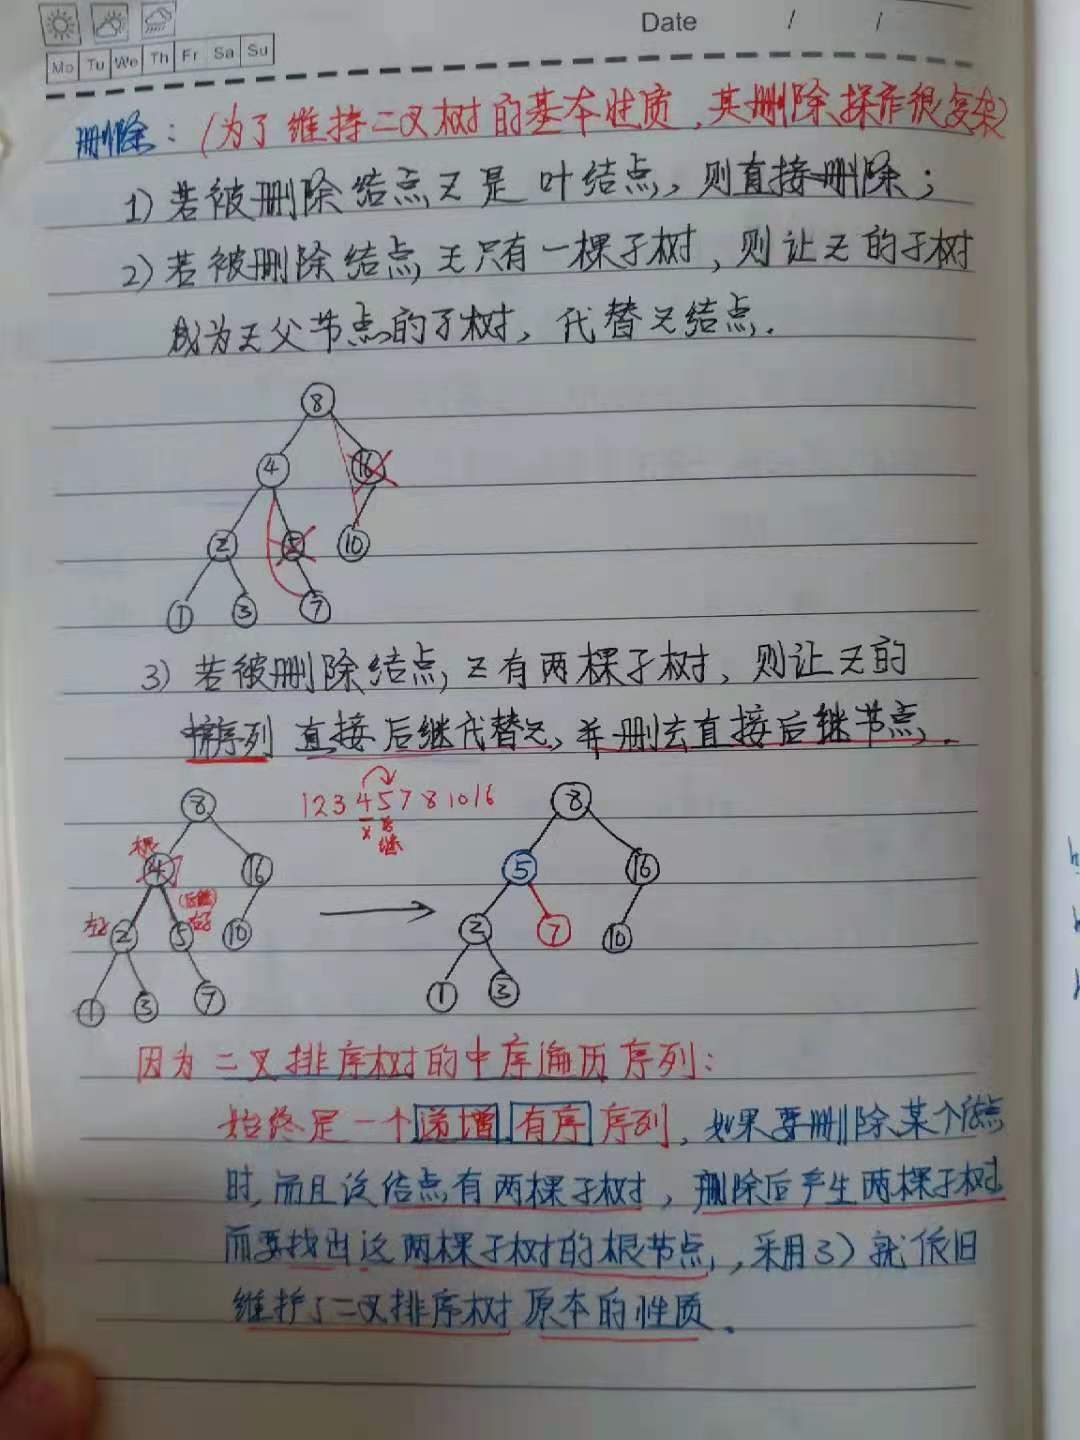 Date / /
Mo Tu We Th Fr Sa Su
删除：(为了维持二叉树的基本性质，其删除操作很复杂)
1) 若被删除结点Z是叶结点，则直接删除；
2) 若被删除结点Z只有一棵子树，则让Z的子树
成为Z父节点的子树，代替Z结点.
8
4 16
2 5 10
1 3 7
3) 若被删除结点Z有两棵子树，则让Z的
中序序列 直接后继代替Z，并删去直接后继节点.
1 2 3 4 5 7 8 10 16
x 后继
8
根 4 16
左子 2 (后继) 5 右子 10
1 3 7
8
5 16
2 7 10
1 3
因为二叉排序树的中序遍历序列：
始终是一个递增 有序 序列，如果要删除某个结点
时，而且该结点有两棵子树，删除后产生两棵子树
而要找出这两棵子树的根节点，采用3) 就依旧
维护了二叉排序树原本的性质。